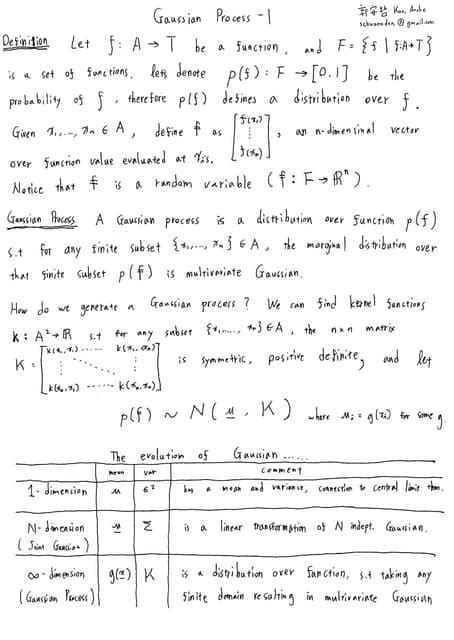 Gaussian Process -1
郭安哲 Kuo, Anche
schwannden @ gmail.com
Definition Let f: A → T be a function, and F = {f | f:A→T}
is a set of functions. lets denote p(f) : F → [0,1] be the
probability of f, therefore p(f) defines a distribution over f.
Given x₁,..., xₙ ∈ A, define f as [f(x₁) ⋮ f(xₙ)], an n-dimensinal vector
over function value evaluated at xᵢs.
Notice that f is a random variable (f : F → ℝⁿ).
Gaussian Process A Gaussian process is a distribution over function p(f)
s.t for any finite subset {x₁,..., xₙ} ∈ A, the marginal distribution over
that finite subset p(f) is multivariate Gaussian.
How do we generate a Gaussian process? We can find kernel functions
k : A² → ℝ s.t for any subset {x₁,..., xₙ} ∈ A, the n×n matrix
K = [k(x₁,x₁) ...... k(x₁,xₙ) ⋮ ⋱ ⋮ k(xₙ,x₁) ...... k(xₙ,xₙ)] is symmetric, positive definite, and let
p(f) ~ N(μ, K) where μᵢ = g(xᵢ) for some g
The evolution of Gaussian ......
mean var comment
1-dimension μ σ² has a mean and variance, connection to central limit thm.
N-dimension μ Σ is a linear transformation of N indept. Gaussian.
(Joint Gaussian)
∞-dimension g(x) K is a distribution over function, s.t taking any
(Gaussian Process) finite domain resulting in multivariate Gaussian